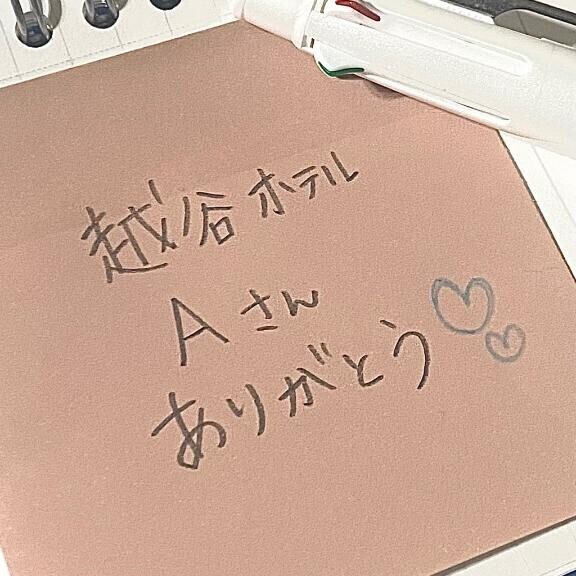 越谷ホテル
Aさん
ありがとう♡♡